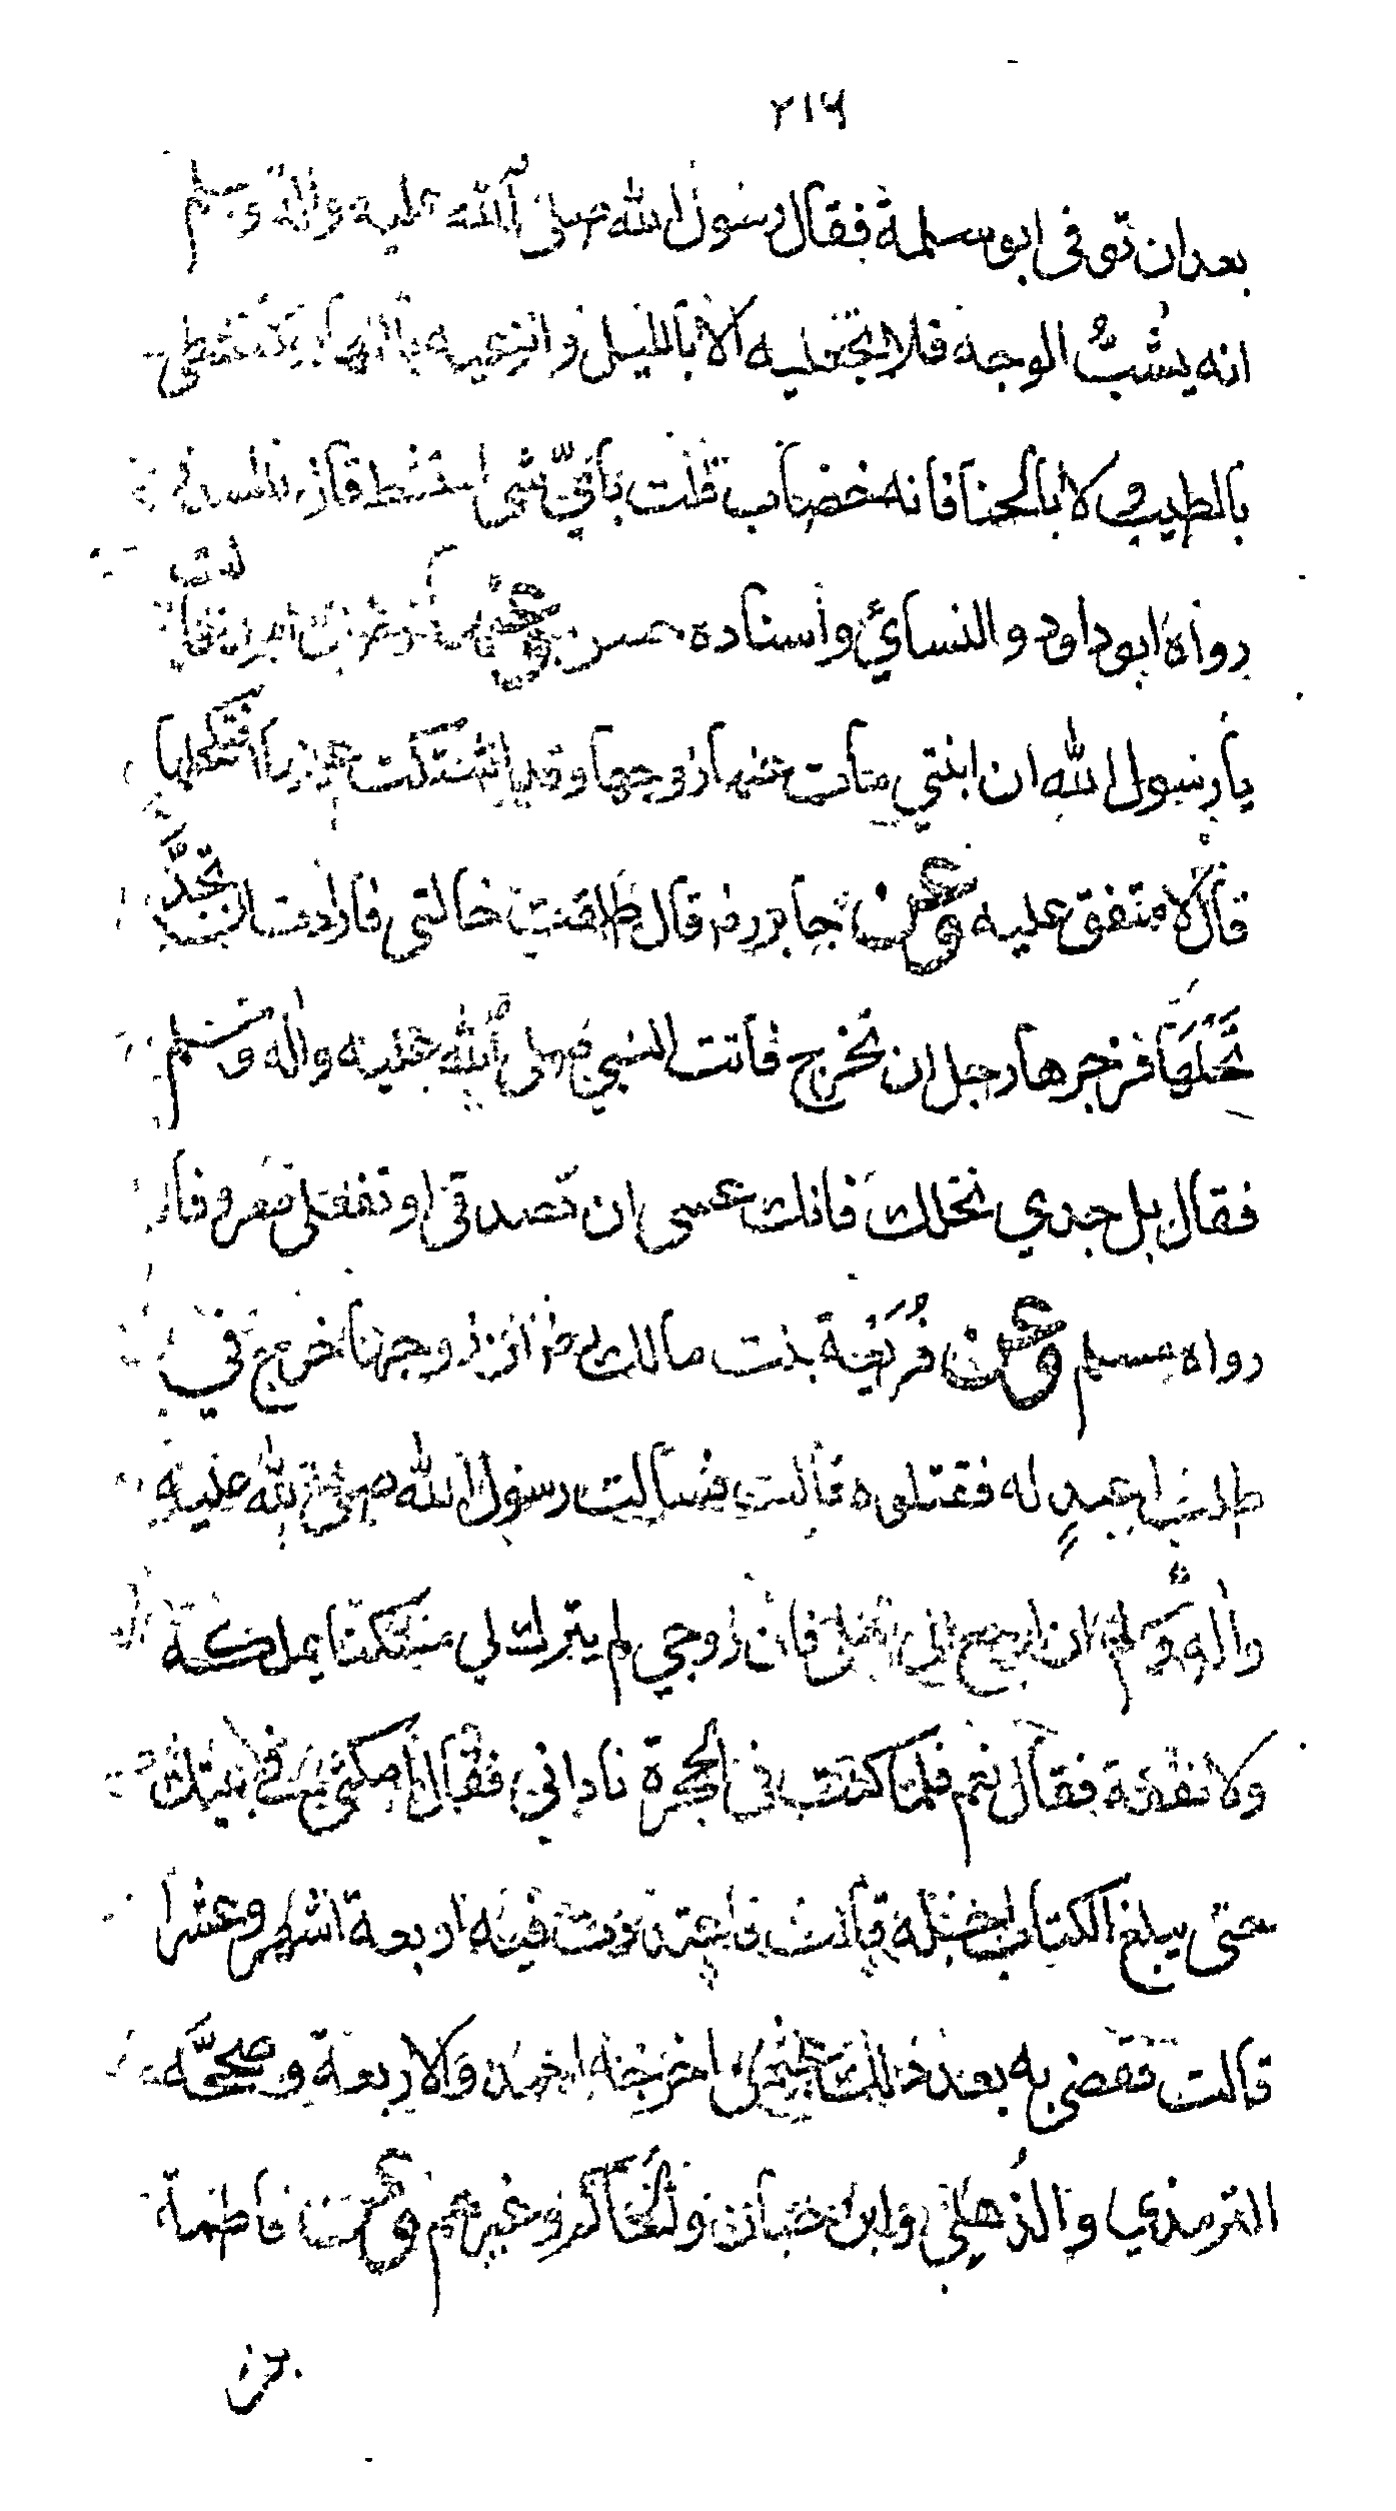 ٢١٦
بعد ان توفى ابو سلمة فقال رسول الله صلى الله عليه واله وسلم
انه يشبُّ الوجه فلا تجعليه الا بالليل وانزعيه بالنهار ولا تمتشطي
بالطيب ولا بالحنا فانه خضاب قلت باي شى امتشط قال بالسدر
رواه ابو داود والنسائي واسناده حسن وعنها ان امراة قالت
يا رسول الله ان ابنتي مات عنها زوجها وقد اشتكت عينها افنكحلها
قال لا متفق عليه وعن جابر رض قال طلقت خالتى فارادت ان تجدَّ
نَخْلَهَا فزجرها رجل ان تخرج فاتت النبي صلى الله عليه واله وسلم
فقال بل جدي نخلك فانك عسى ان تصدقى او تفعلى معروفا
رواه مسلم وعن فُرَيْعة بنت مالك رض ان زوجها خرج في
طلب اعبدٍ له فقتلوه قالت فسالت رسول الله صلى الله عليه
واله وسلم ان ارجع الى اهلى فان زوجي لم يترك لي مسكنا يملكه
ولا نفقة فقال نعم فلما كنت فى الحجرة نادانى فقال امكثى في بيتك
حتى يبلغ الكتاب اجله قالت فاعتددت فيه اربعة اشهر وعشرا
قالت فقضى به بعد ذلك عثمان اخرجه احمد والاربعة وصححه
الترمذي والذُهلي وابن حبان والحاكم وغيرهم وعن فاطمة
بن